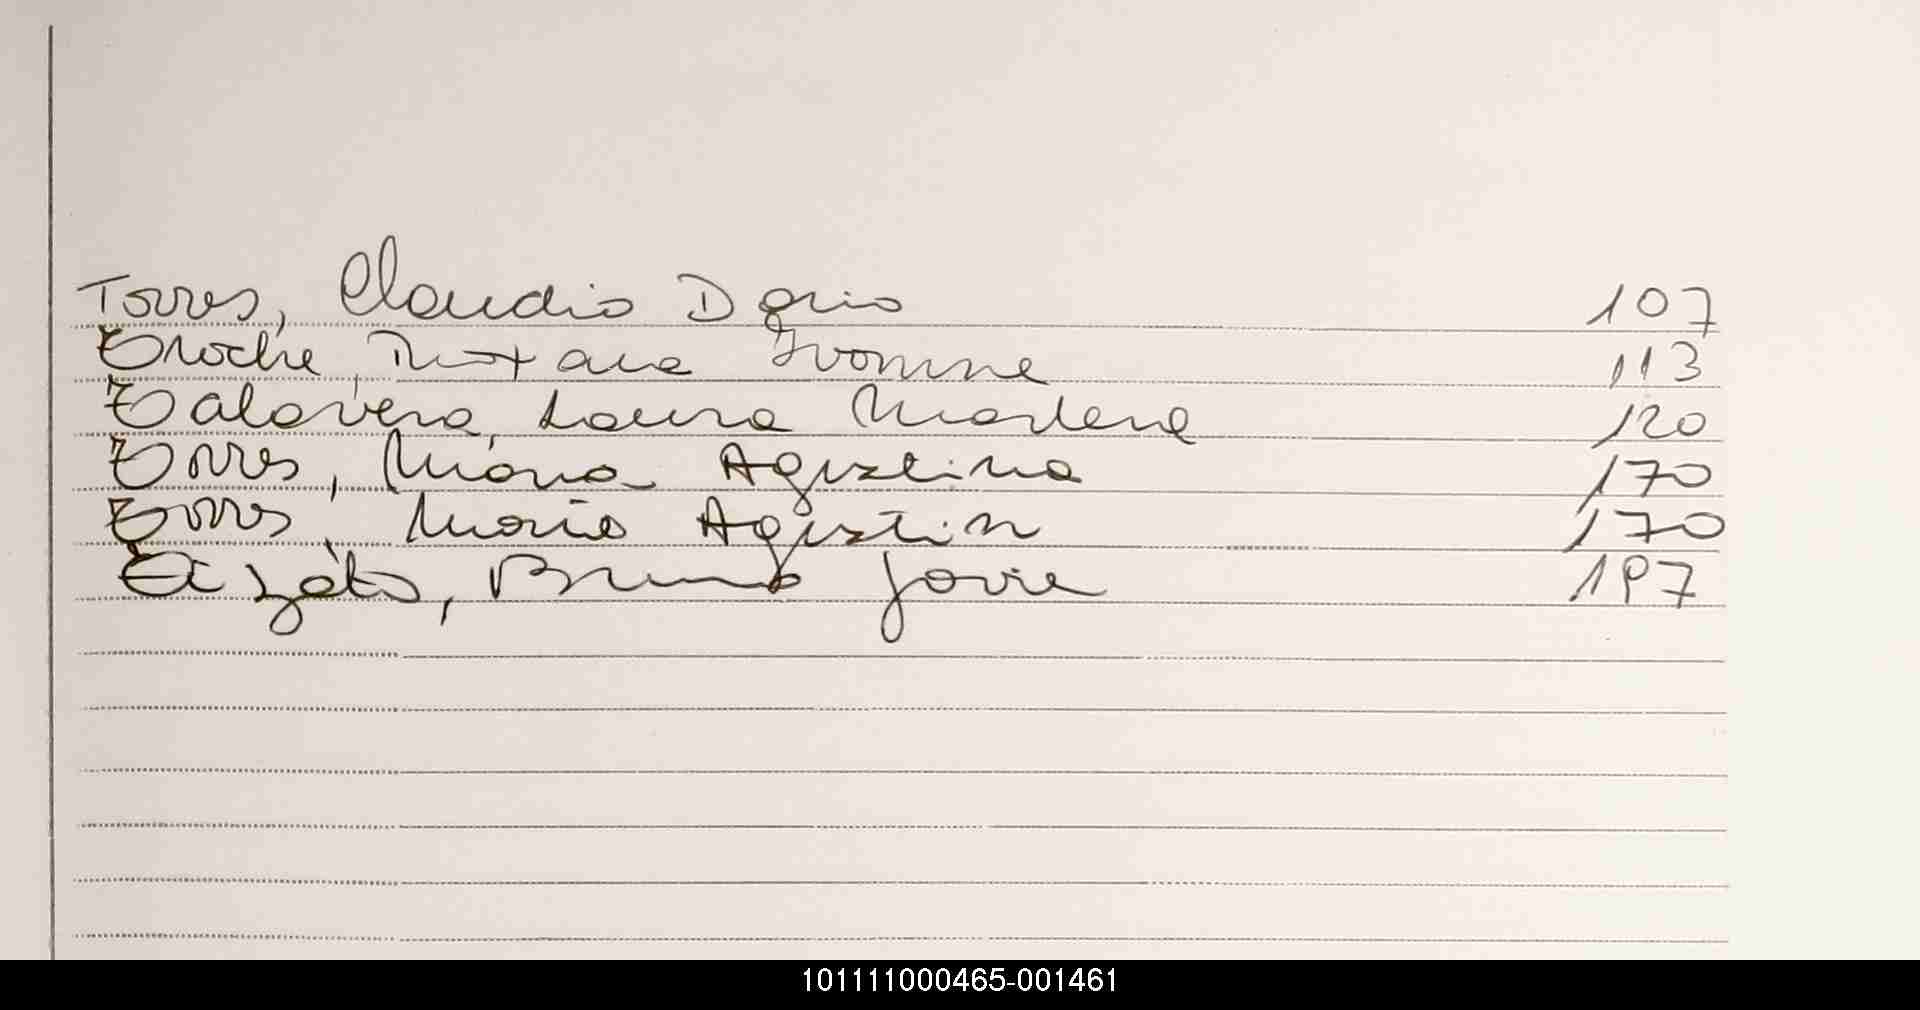 Torres, Claudio Dario 107
Troche, Roxana Ivonne 113
Talavera, Laura Marlene 120
Torres, Maria Agustina 170
Torres, Mario Agustin 170
Bruno Javier 197
101111000465-001461